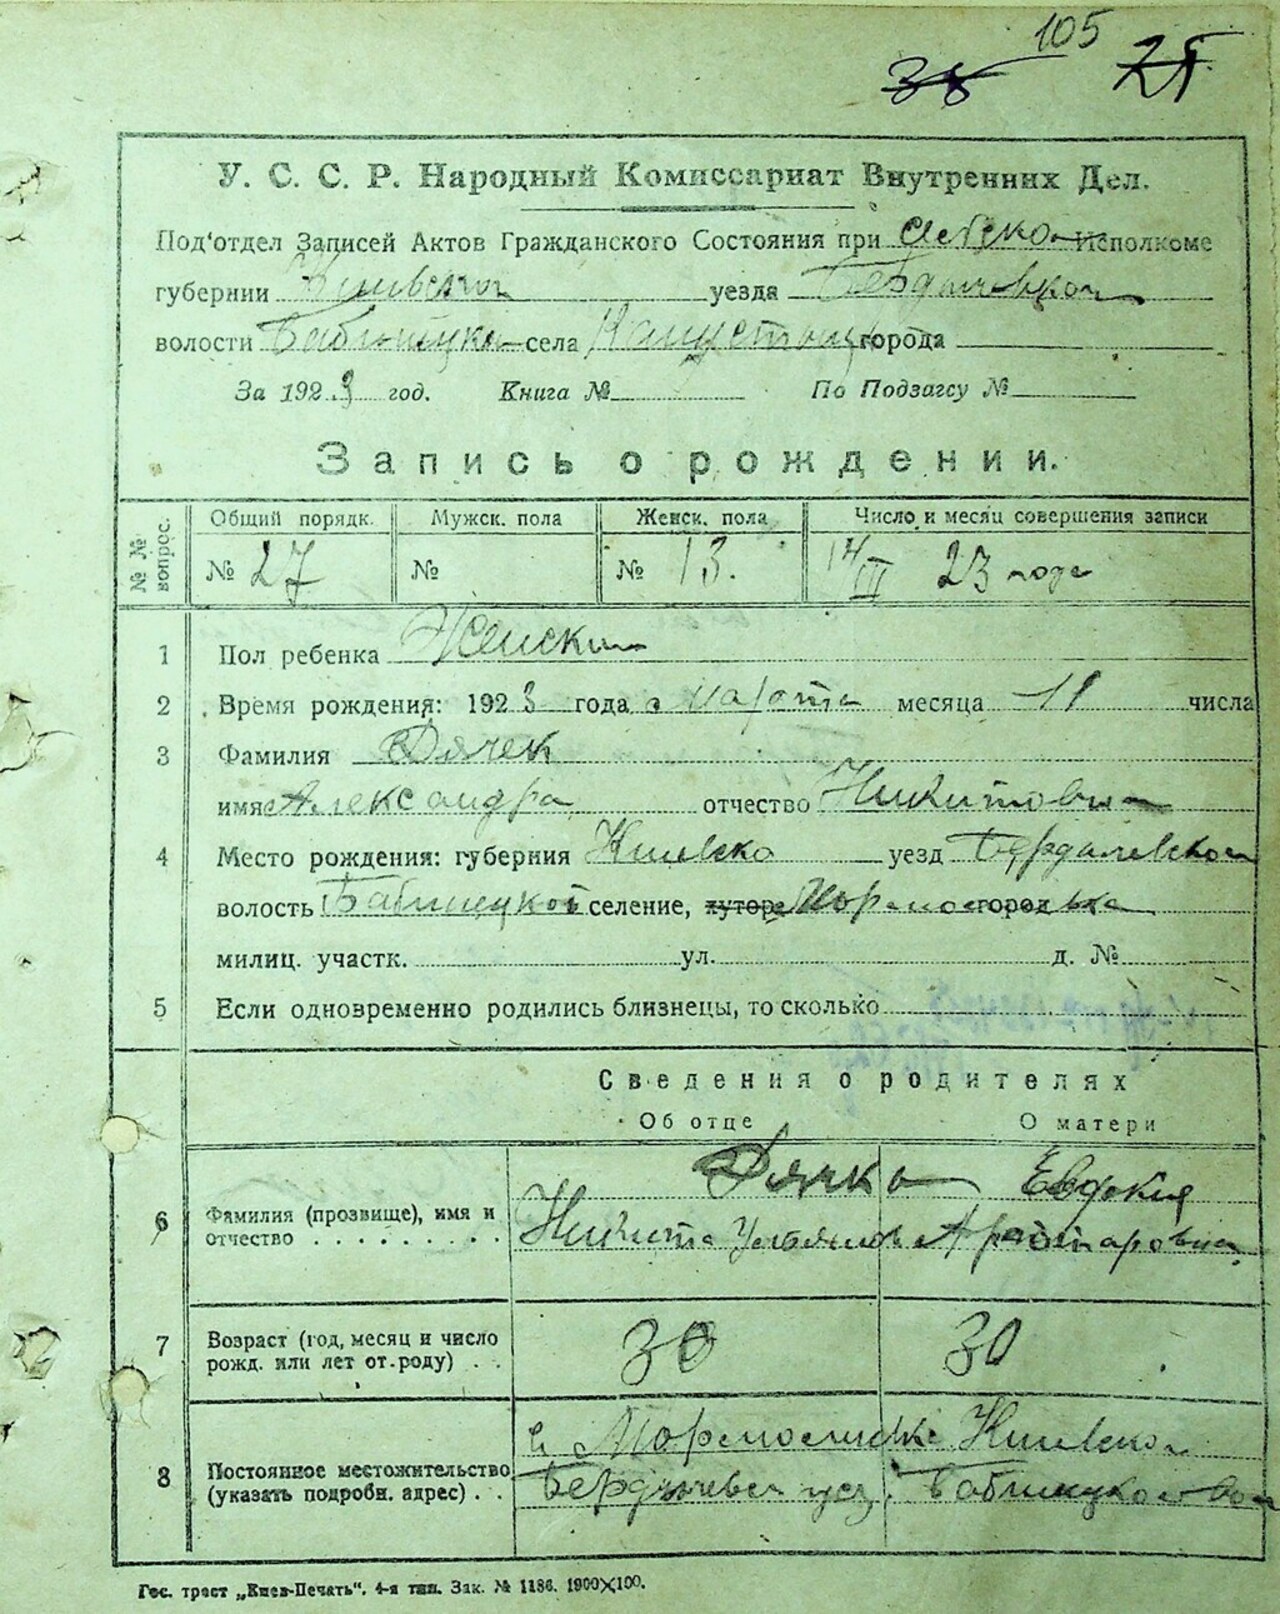 105
38 25
У. С. С. Р. Народный Комиссариат Внутренних Дел.
Под'отдел Записей Актов Гражданского Состояния при Исполкоме
губернии Киевской уезда Бердичевской
волости села города
За 1923 год. Книга № По Подзагсу №
Запись о рождении.
№ № вопрос. Общий порядк. Мужск. пола Женск. пола Число и месяц совершения записи
№ 27 № № 13. 14/III 23 года
1 Пол ребенка Женский
2 Время рождения: 1923 года марта месяца 11 числа
3 Фамилия Дячек
имя Александра отчество Никитовна
4 Место рождения: губерния Киевско уезд Бердичевской
волость Бабинецкой селение, хутор, город
милиц. участк. ул. д. №
5 Если одновременно родились близнецы, то сколько
Сведения о родителях
Об отце О матери
Дячка Евдокия
6 Фамилия (прозвище), имя и
отчество . . . . . . . . . Никита Ульянов
7 Возраст (год, месяц и число
рожд. или лет от. роду) . . 30 30
8 Постоянное местожительство
(указать подробн. адрес) . . Киевской
Бердичевск уез. Бабинецкой вол
Гос. трест „Киев-Печать". 4-я тип. Зак. № 1186. 1900×100.